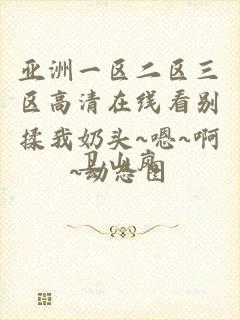 亚洲一区二区三
区高清在线看别
揉我奶头~嗯~啊
~动态图